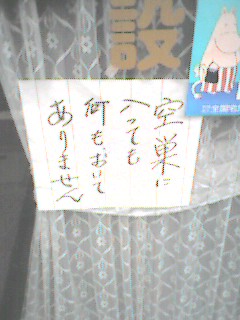 設
空巣に
入っても
何もおいて
ありません